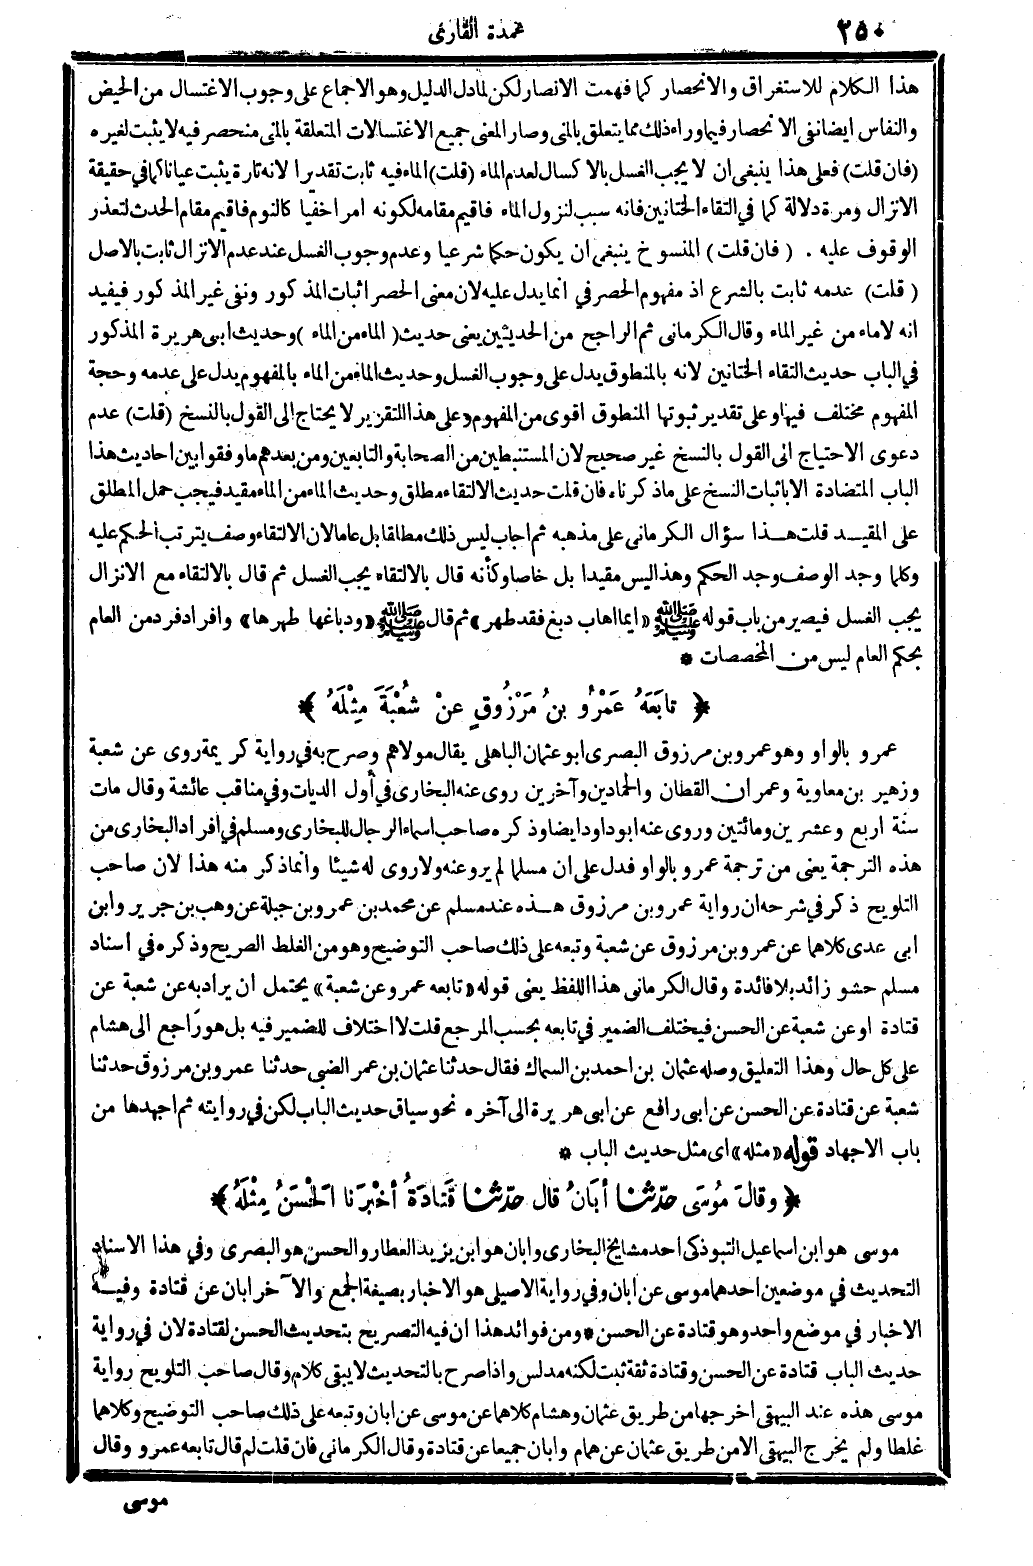 ٢٥٠
عمدة القارئ
هذا الكلام للاستغراق والانحصار كما فهمت الانصار لكن لمادل الدليل وهو الاجماع على وجوب الاغتسال من الحيض
والنفاس ايضانفى الانحصار فيما وراء ذلك مما يتعلق بالمنى وصار المعنى جميع الاغتسالات المتعلقة بالمنى منحصر فيه لا يثبت لغيره
(فان قلت) فعلى هذا ينبغى ان لا يجب الغسل بالاكسال لعدم الماء (قلت) الماء فيه ثابت تقديرا لانه تارة يثبت عيانا كما في حقيقة
الانزال ومرة دلالة كما في التقاء الختانين فانه سبب لنزول الماء فاقيم مقامه لكونه امرا خفيا كالنوم فاقيم مقام الحدث لتعذر
الوقوف عليه . (فان قلت) المنسوخ ينبغى ان يكون حكما شرعيا وعدم وجوب الغسل عند عدم الانزال ثابت بالاصل
(قلت) عدمه ثابت بالشرع اذ مفهوم الحصر في انما يدل عليه لان معنى الحصر اثبات المذكور ونفى غير المذكور فيفيد
انه لاماء من غير الماء وقال الكرمانى ثم الراجح من الحديثين يعنى حديث (الماء من الماء) وحديث ابى هريرة المذكور
في الباب حديث التقاء الختانين لانه بالمنطوق يدل على وجوب الغسل وحديث الماء من الماء بالمفهوم يدل على عدمه وحجة
المفهوم مختلف فيها وعلى تقدير ثبوتها المنطوق اقوى من المفهوم وعلى هذا التقرير لا يحتاج الى القول بالنسخ (قلت) عدم
دعوى الاحتياج الى القول بالنسخ غير صحيح لان المستنبطين من الصحابة والتابعين ومن بعدهم ما وفقوا بين احاديث هذا
الباب المتضادة الا باثبات النسخ على ماذكرناه فان قلت حديث الالتقاء مطلق وحديث الماء من الماء مقيد فيجب حمل المطلق
على المقيد قلت هذا سؤال الكرمانى على مذهبه ثم اجاب ليس ذلك مطلقا بل عاما لان الالتقاء وصف يترتب الحكم عليه
وكلما وجد الوصف وجد الحكم وهذا ليس مقيدا بل خاصا وكأنه قال بالالتقاء يجب الغسل ثم قال بالالتقاء مع الانزال
يجب الغسل فيصير من باب قوله ﷺ «ايما اهاب دبغ فقد طهر» ثم قال ﷺ «ودباغها طهرها» وافراد فرد من العام
بحكم العام ليس من المخصصات *
﴿ تابَعَهُ عَمْرُو بنُ مَرْزُوقٍ عنْ شُعْبَةَ مِثْلَهُ ﴾
عمرو بالواو وهو عمرو بن مرزوق البصرى ابو عثمان الباهلى يقال مولاهم وصرح به في رواية كريمة روى عن شعبة
وزهير بن معاوية وعمران القطان والحمادين وآخرين روى عنه البخارى في أول الديات وفي مناقب عائشة وقال مات
سنة اربع وعشرين ومائتين وروى عنه ابو داود ايضا وذكره صاحب اسماء الرجال للبخارى ومسلم في افراد البخارى من
هذه الترجمة يعنى من ترجمة عمرو بالواو فدل على ان مسلما لم يرو عنه ولا روى له شيئا وانما ذكر منه هذا لان صاحب
التلويح ذكر في شرحه ان رواية عمرو بن مرزوق هذه عند مسلم عن محمد بن عمرو بن جبلة عن وهب بن جرير وابن
ابى عدى كلاهما عن عمرو بن مرزوق عن شعبة وتبعه على ذلك صاحب التوضيح وهو من الغلط الصريح وذكره في اسناد
مسلم حشو زائد بلا فائدة وقال الكرمانى هذا اللفظ يعنى قوله «تابعه عمرو عن شعبة» يحتمل ان يراد به عن شعبة عن
قتادة او عن شعبة عن الحسن فيختلف الضمير في تابعه بحسب المرجع قلت لا اختلاف للضمير فيه بل هو راجع الى هشام
على كل حال وهذا التعليق وصله عثمان بن احمد بن السماك فقال حدثنا عثمان بن عمر الضبى حدثنا عمرو بن مرزوق حدثنا
شعبة عن قتادة عن الحسن عن ابى رافع عن ابى هريرة الى آخره نحو سياق حديث الباب لكن في روايته ثم اجهدها من
باب الاجهاد قوله «مثله» اى مثل حديث الباب *
﴿ وقالَ مُوسَى حدّثنا أبَانُ قال حدّثنا قَتَادَةُ أخْبَرَنا الحَسَنُ مِثْلَهُ ﴾
موسى هو ابن اسماعيل التبوذكى احد مشايخ البخارى وابان هو ابن يزيد العطار والحسن هو البصرى وفي هذا الاسناد
التحديث في موضعين احدهما موسى عن ابان وفي رواية الاصيلى هو الاخبار بصيغة الجمع والآخر ابان عن قتادة وفيه
الاخبار في موضع واحد وهو قتادة عن الحسن * ومن فوائد هذا ان فيه التصريح بتحديث الحسن لقتادة لان في رواية
حديث الباب قتادة عن الحسن وقتادة ثقة ثبت لكنه مدلس واذا صرح بالتحديث لا يبقى كلام وقال صاحب التلويح رواية
موسى هذه عند البيهقى اخرجها من طريق عثمان وهشام كلاهما عن موسى عن ابان وتبعه على ذلك صاحب التوضيح وكلاهما
غلطا ولم يخرج البيهقى الا من طريق عثمان عن همام وابان جميعا عن قتادة وقال الكرمانى فان قلت لم قال تابعه عمرو وقال
موسى